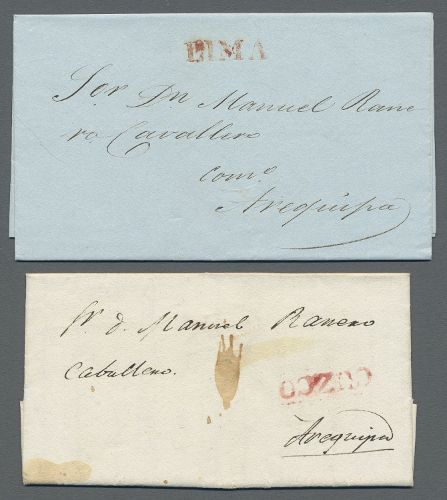 LIMA
Sor. Dn. Manuel Rane
ro Cavallero
como.
Arequipa
Sr. d. Manuel Ranero
Caballero.
CUZCO
Arequipa